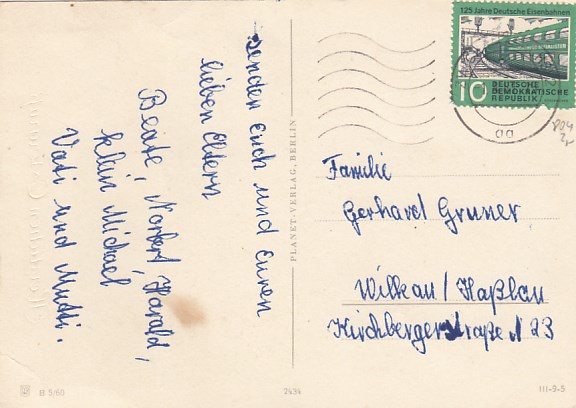 senden Euch und Euren
lieben Eltern
Beate, Norbert, Harald,
klein Michael
Vati und Mutti.
PLANET-VERLAG, BERLIN
125 Jahre Deutsche Eisenbahnen
10 DEUTSCHE
DEMOKRATISCHE
REPUBLIK
Familie
Gerhard Gruner
Wilkau / Haßlau
Kirchbergerstraße N 23
B 5/60
2434
III-9-5